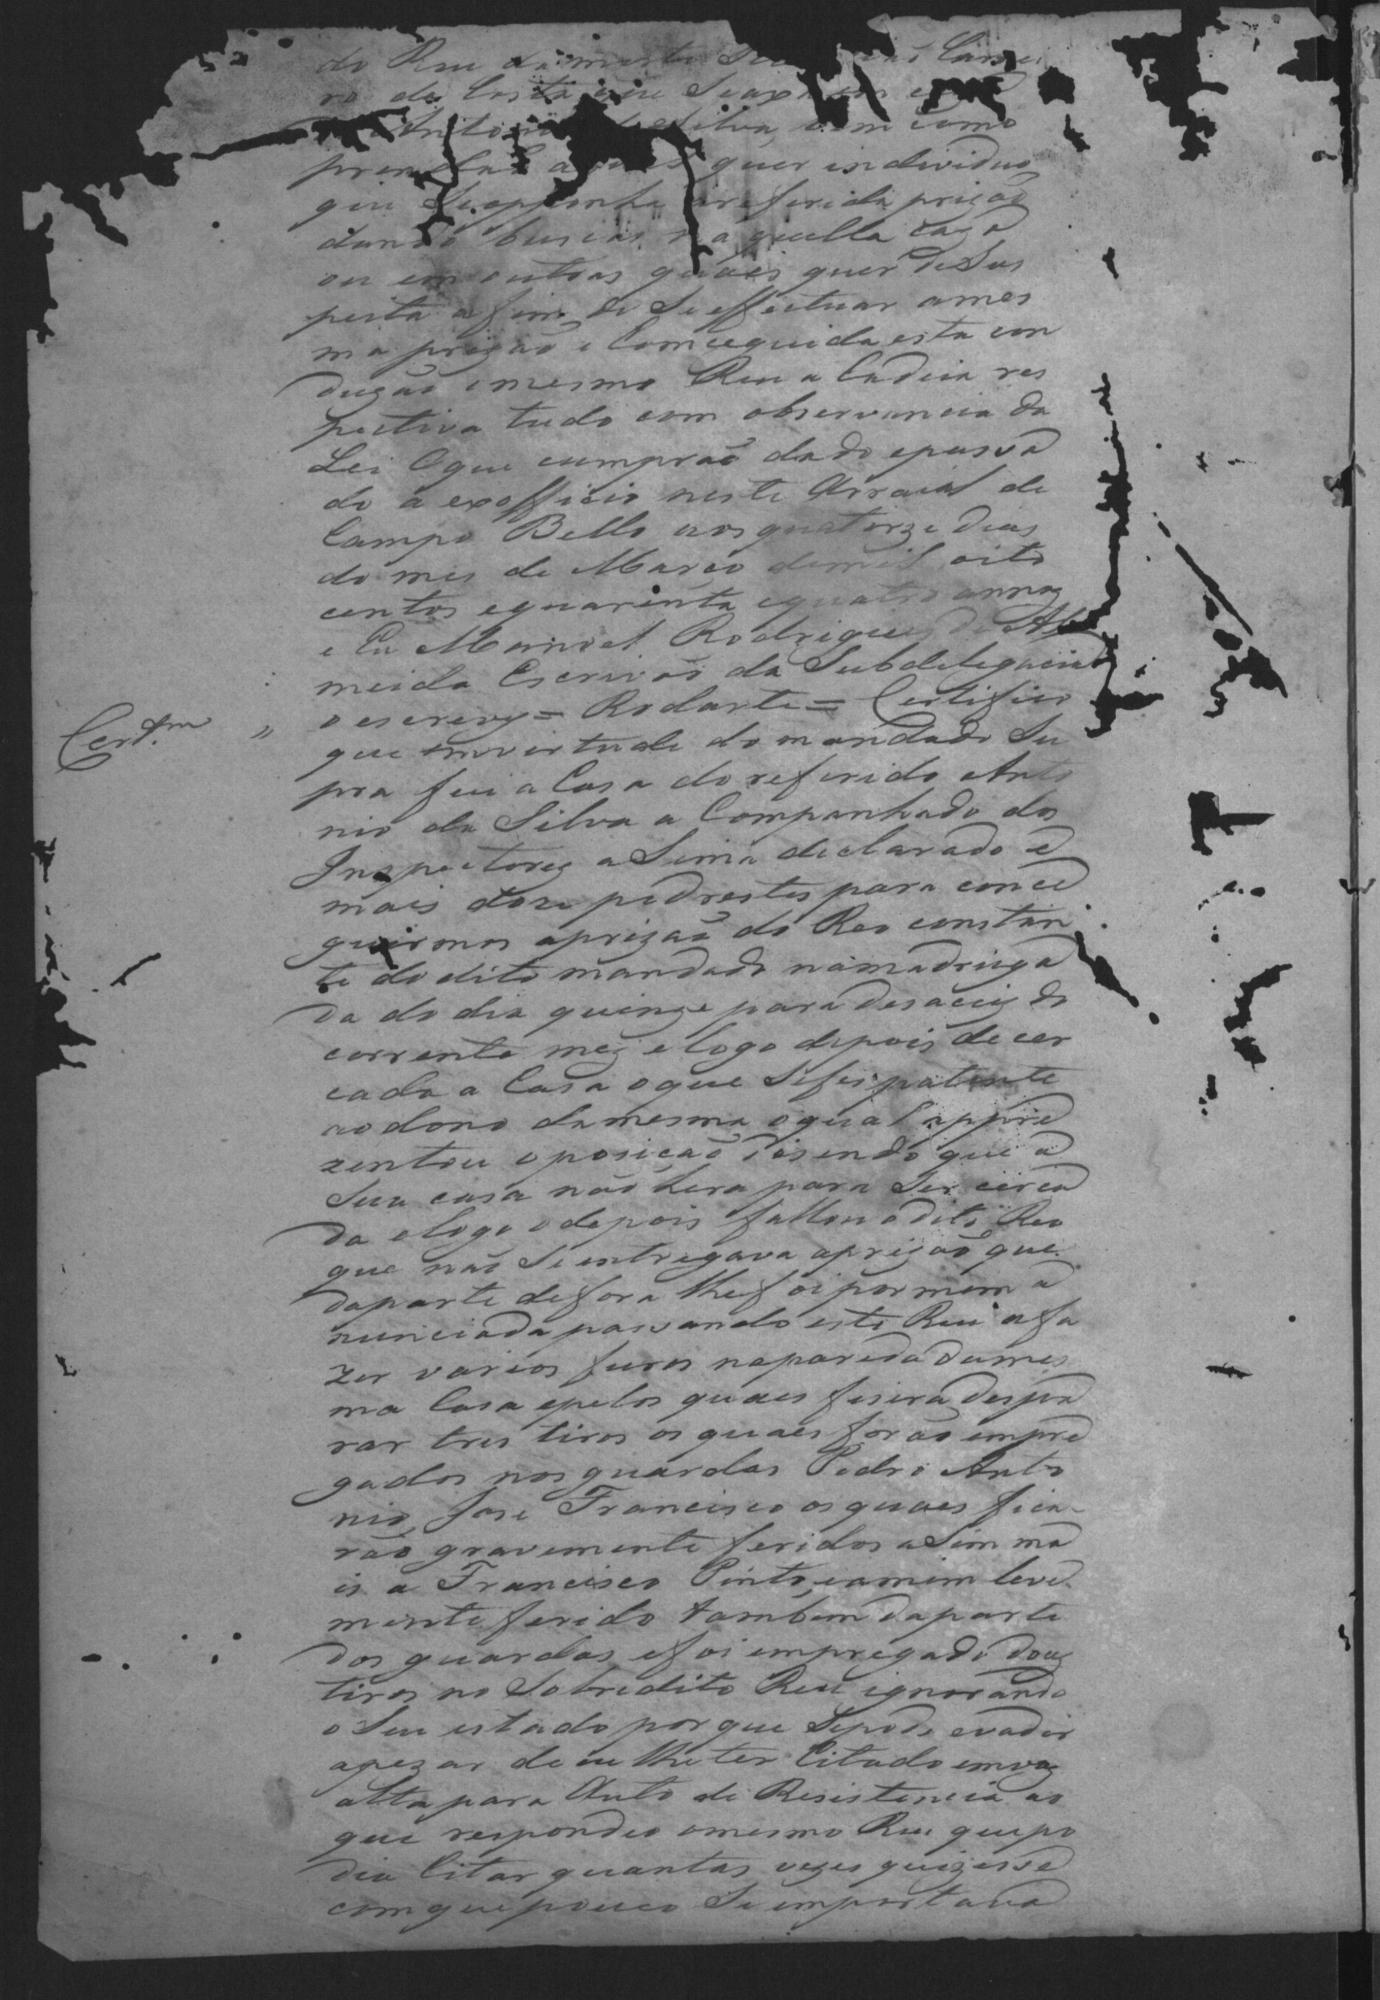 do Reu
ro da Costa que
Antonio da Silva, bem como
prender a quaes quer individuo
que Se opponha a referida prizão
dando buscas naquella caza
ou em outras quaes quer de Sus
peita a fim de Se effectuar a mes
ma prizão e Comceguida esta con
duzão o mesmo Reu a Cadeia res
pectiva tudo com observancia da
Lei O que cumprão dado e passa
do a exofficio neste Arraial de
Campo Bello aos quatorze dias
do mes de Março de mil oito
centos e quarenta e quatro annos
e Eu Manoel Rodrigues de Al
meida Escrivão da Subdelegacia
o escrevy = Rodarte = Certifico
Cert.am "
que em virtude do mandado Su
pra fui a Casa do referido Anto
nio da Silva a Companhado dos
Inspectores a Sima declarado e
mais doze pedrestes para conce
guirmos a prizão do Reo constan
te do dito mandado na madruga
da do dia quinze para desaceis do
corrente mez e logo depois de cer
cada a Casa o que Se fes patente
ao dono da mesma o qual appre
zentou oposicão disendo que a
Sua casa não hera para Ser cerca
da e logo o depois fallou o dito Reo
que não Se entregava a prizão que
da parte de fora lhe foi por mim a
nunciada passando este Reu a fa
zer varios furos na parede da mes
ma Casa e pelos quaes fisera despa
rar tres tiros os quaes forão empre
gados nos guardas Pedro Anto
nio, Jose Francisco os quaes fica
rão gravemente feridos a Sim ma
is a Francisco Pinto, e a mim leve
mente ferido tambem da parte
dos guardas e foi empregado dous
tiros no Sobredito Reu ignorando
o Seu estado por que Se pode evadir
apezar de eu lhe ter Citado em voz
alta para Auto de Resistencia ao
que respondeo o mesmo Reu que po
dia Citar quantas vezes quizesse
com que pouco Se importava